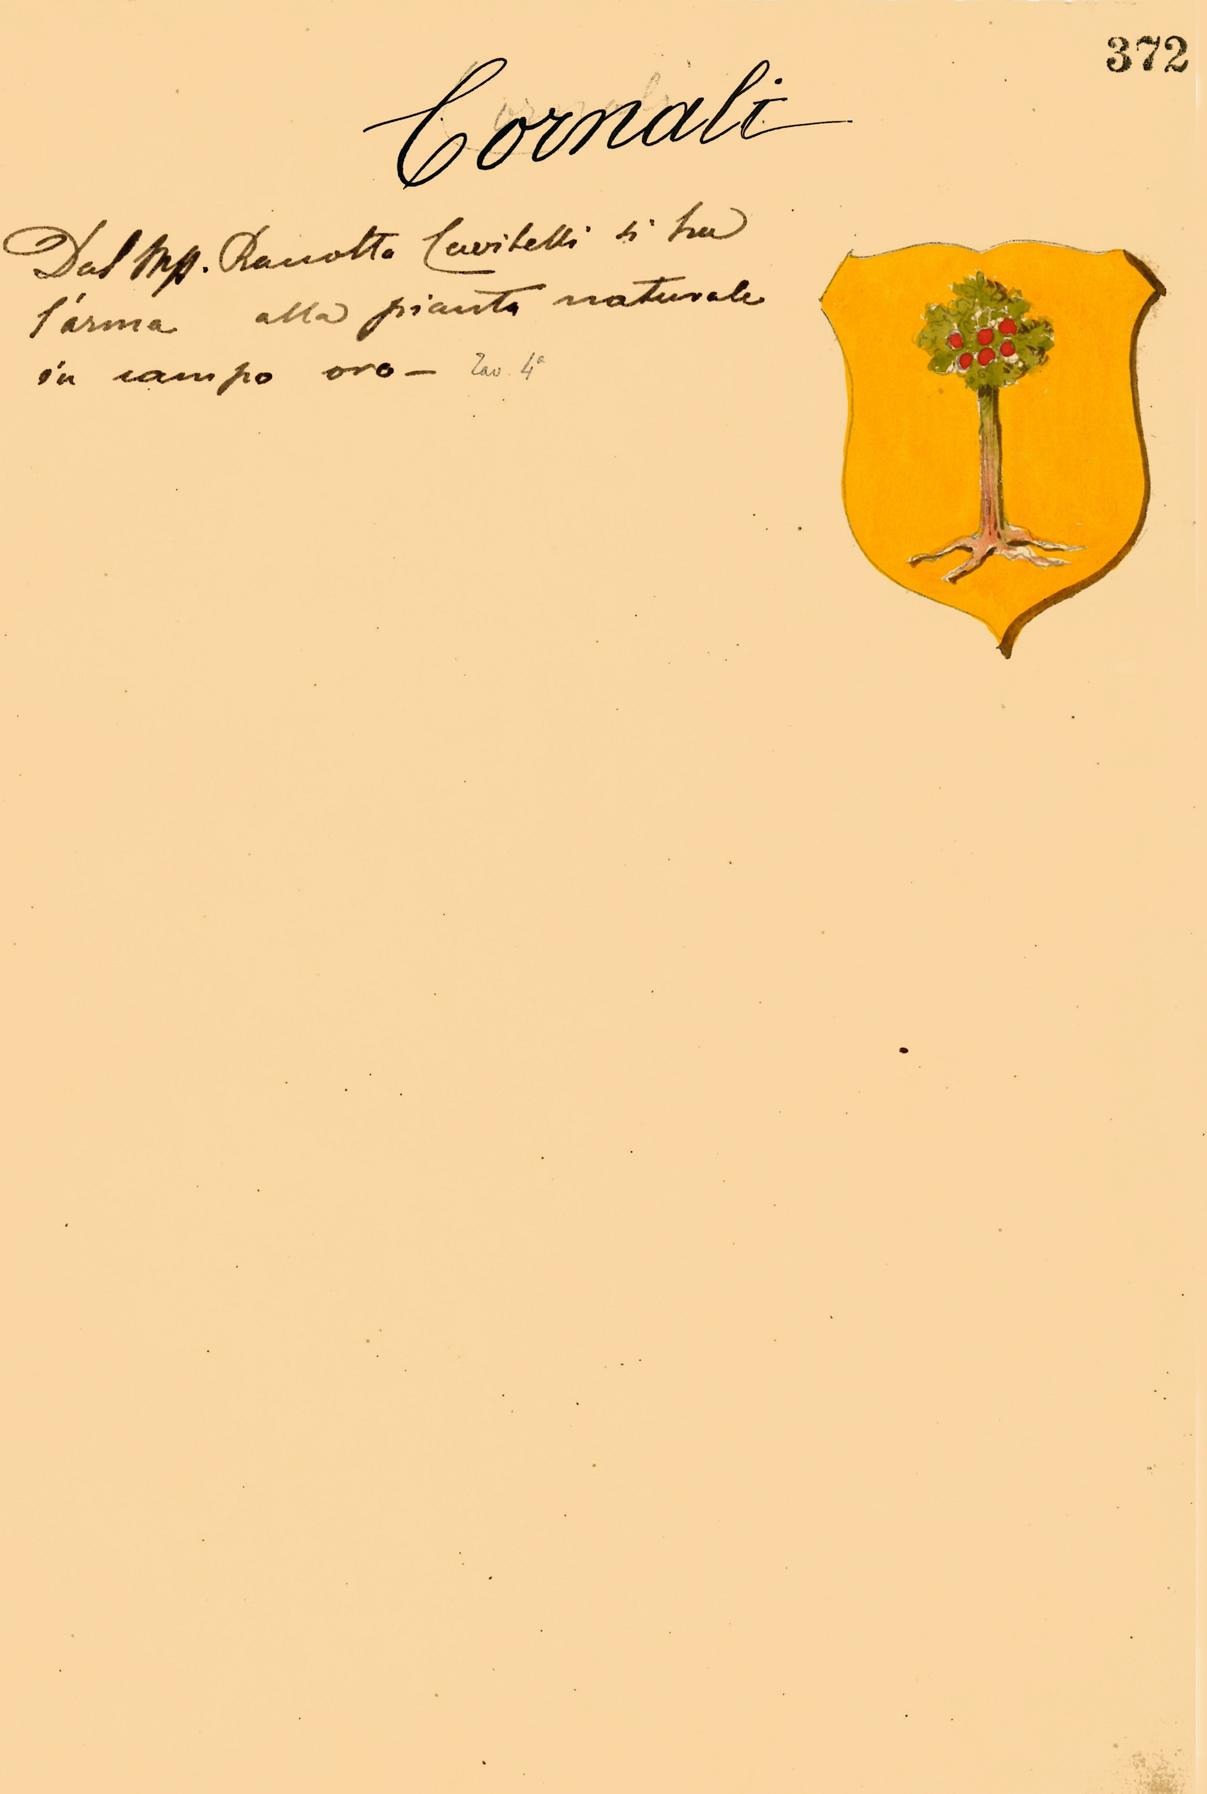 372
Cornali
Dal Mp. Ranotta Cavitelli si ha
l'arma alla pianta naturale
in campo oro — Tav. 4ª